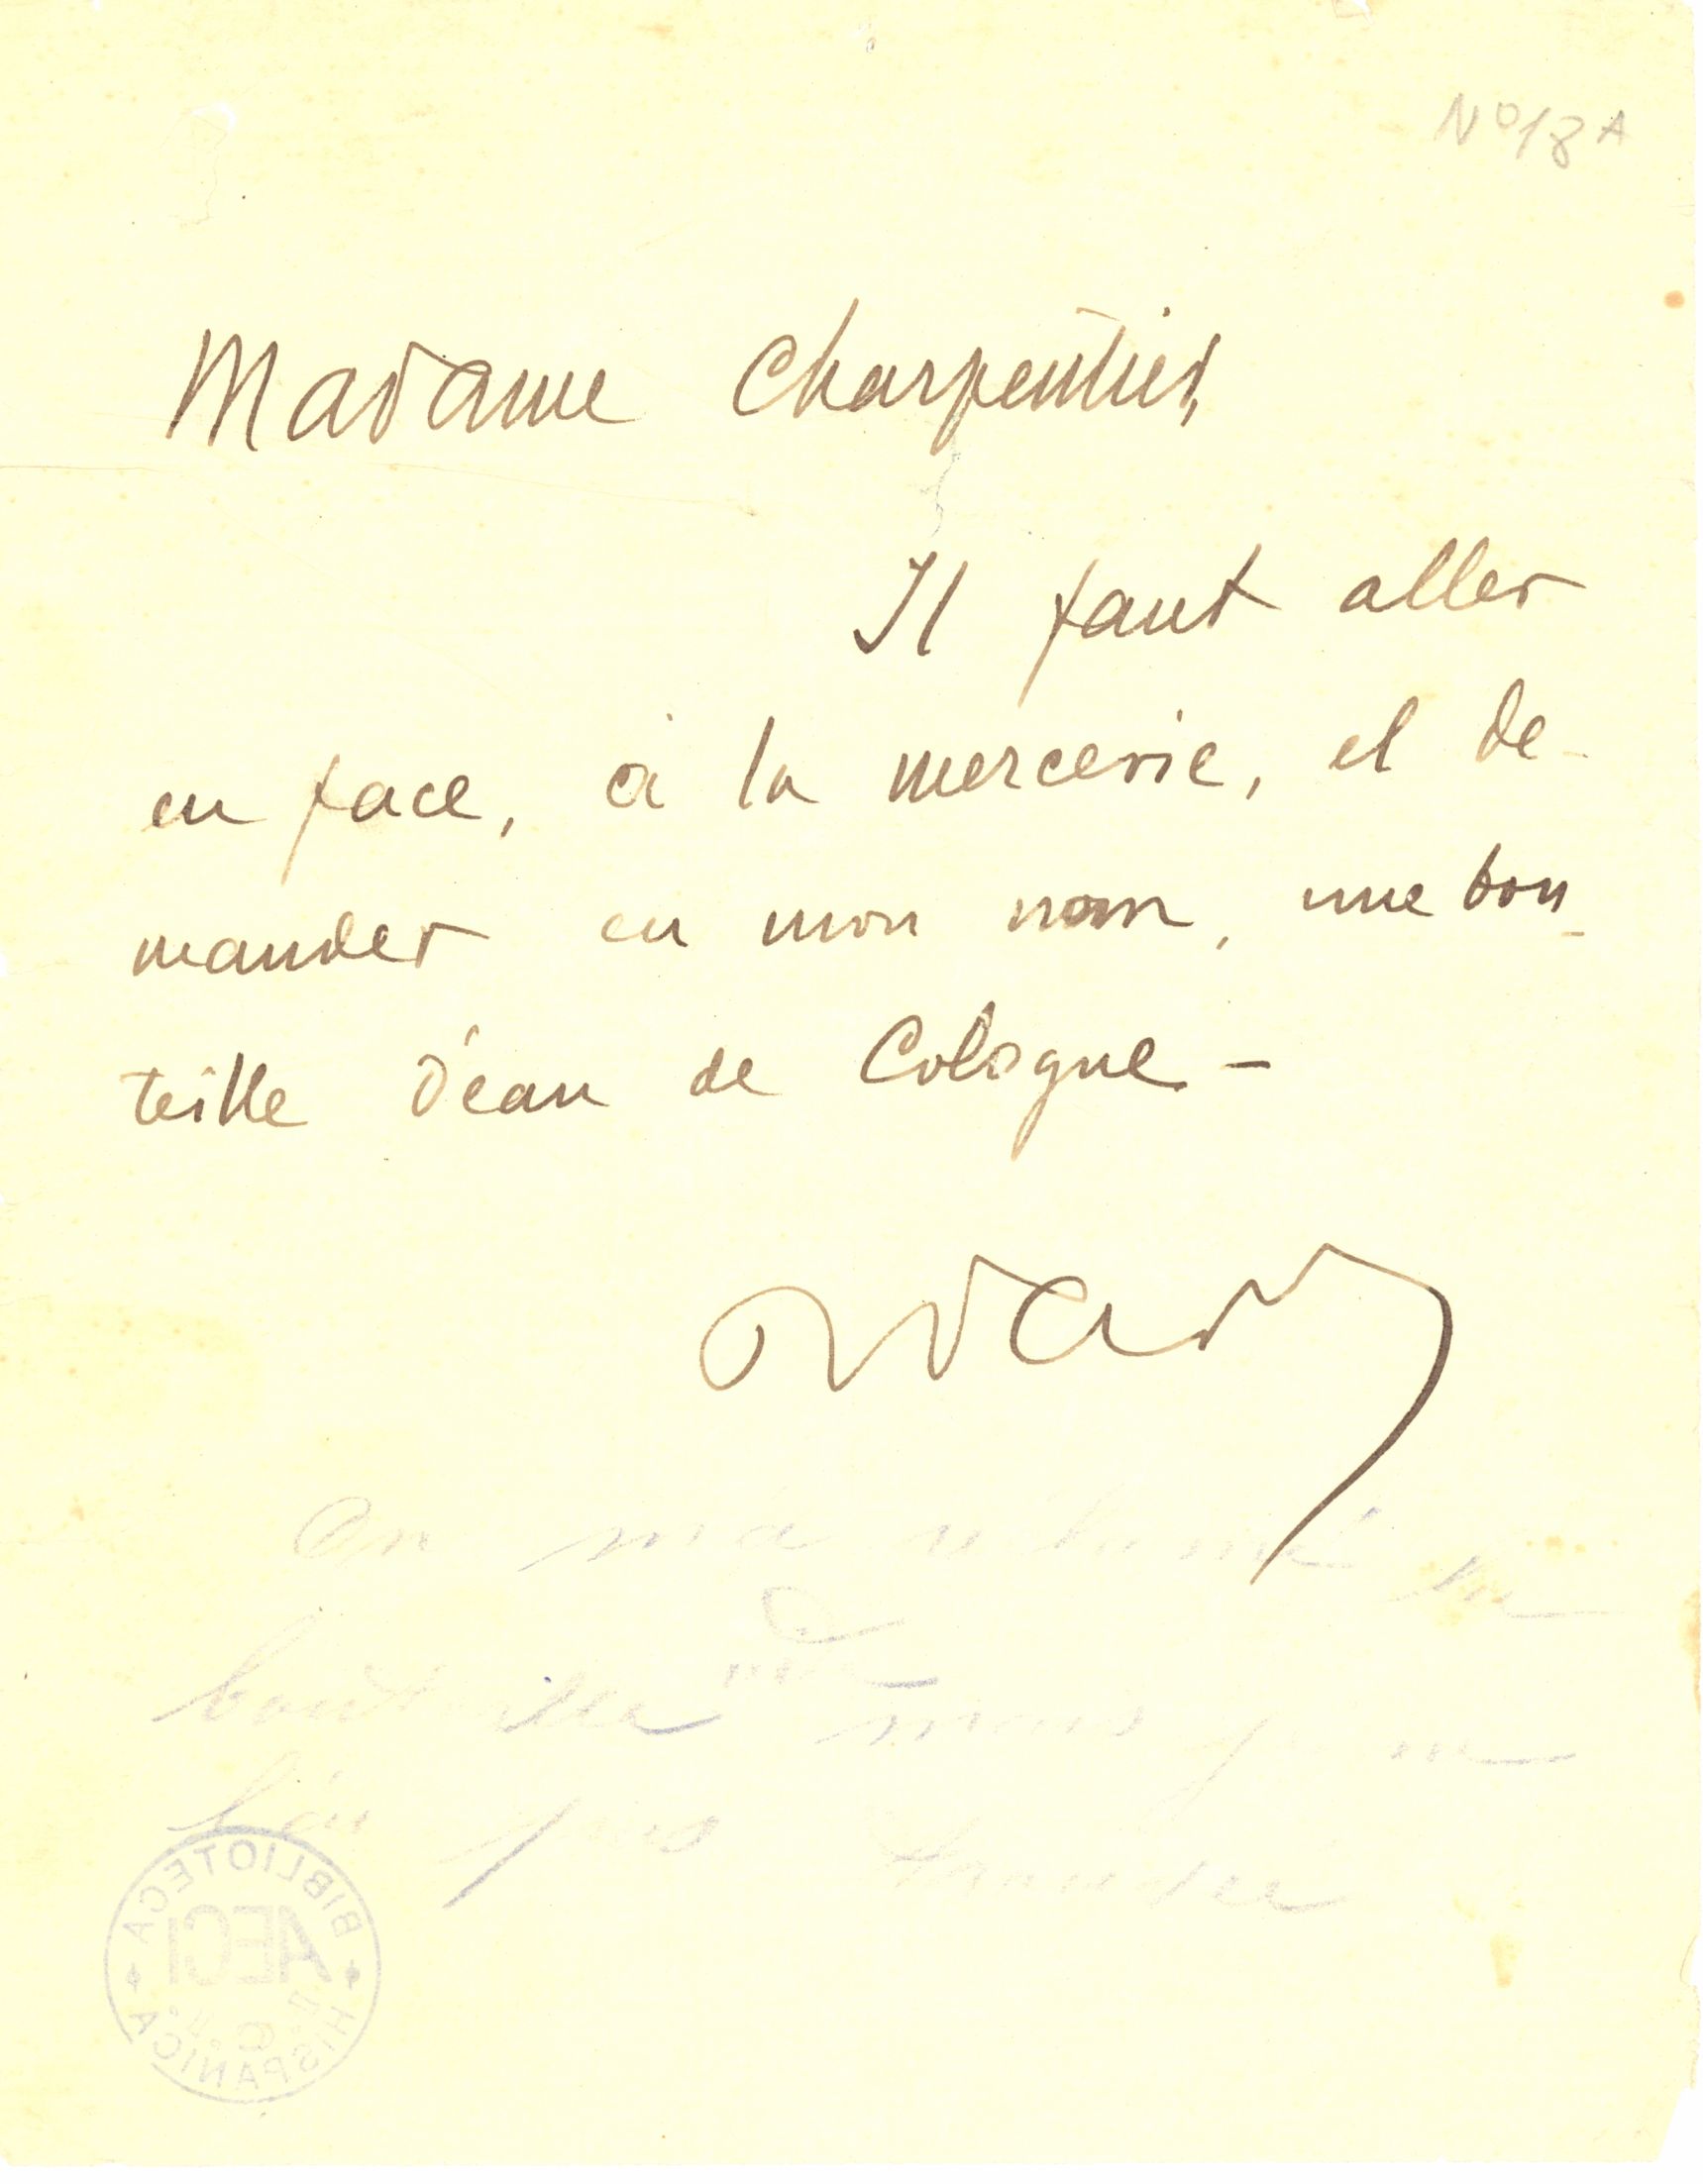 Nº 18 A
Madame Charpentier,
Il faut aller
en face, à la mercerie, et de-
mander en mon nom, une bou-
teille d'eau de Cologne -
On m'a
bouteille mais
pas
BIBLIOTECA
AECI
HISPANICA